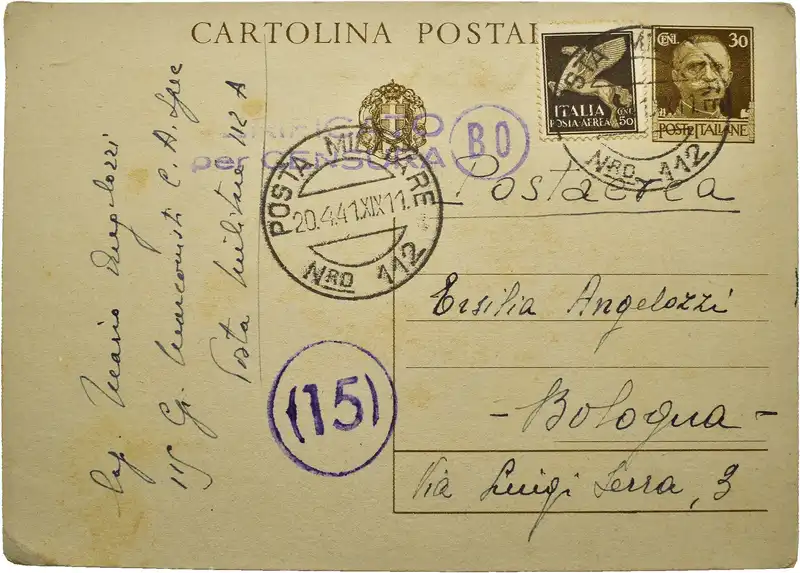 CARTOLINA POSTAL
ITALIA
POSTA AEREA
CENT. 50
CENT. 30
POSTE ITALIANE
VERIFICATO
per CENSURA
BO
POSTA MILITARE
20.4.41.XIX 11.
NRO 112
POSTA MI
NRO 112
Postaerea
Ersilia Angelozzi
- Bologna -
Via Luigi Serra, 3
(15)
Mario Angelozzi
115 Marconisti C. A. Spec
Posta Militare 112 A